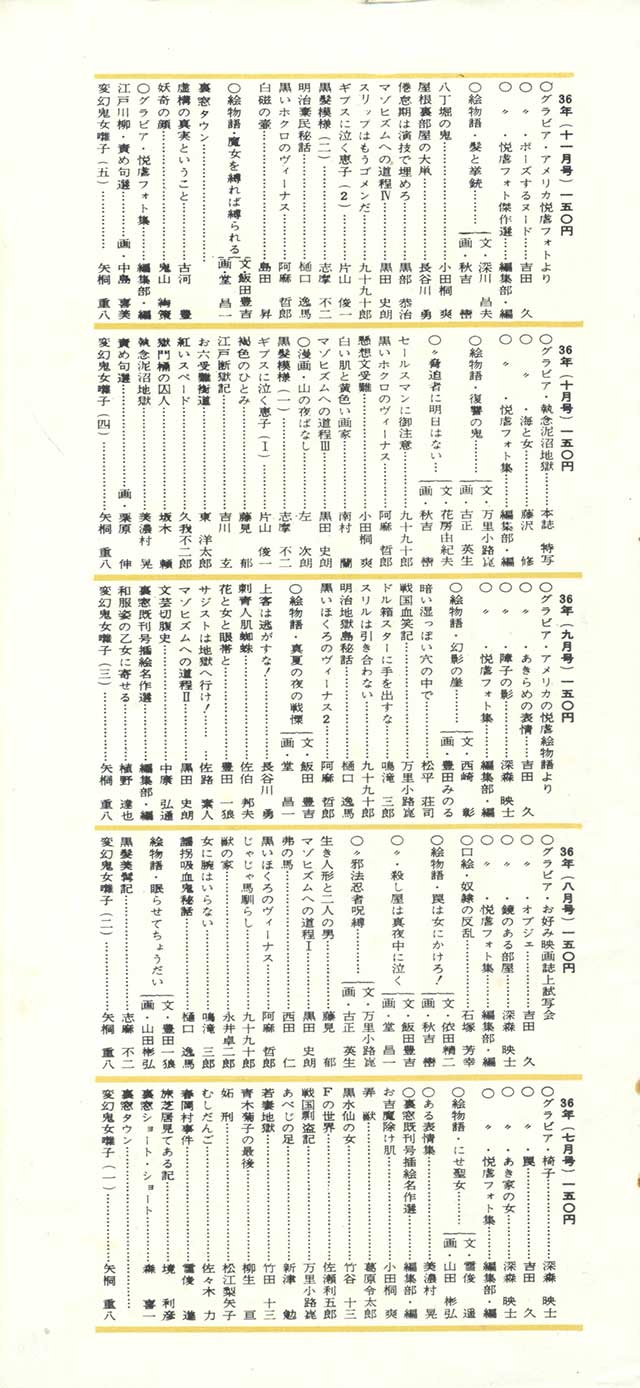 36年(十一月号)一五〇円
〇グラビア・アメリカ悦虐フォトより
〇 〃 ・ポーズするヌード………吉田 久
〇 〃 ・悦虐フォト傑作選………編集部・編
〇絵物語・髪と拳銃………文・深川 昌夫
画・秋吉 巒
八丁堀の鬼………小田桐 爽
屋根裏部屋の大県………長谷川 勇
倦怠期は演技で埋めろ………黒部 恭治
マゾヒズムへの道程Ⅳ………黒田 史朗
スリップはもうゴメンだ………九十九十郎
ギプスに泣く恵子(2)………片山 俊一
黒髪模様(二)………志摩 不二
明治棄民秘話………樋口 逸馬
黒いホクロのヴィーナス………阿麻 哲郎
白磁の壷………島田 昇
〇絵物語・魔女を縛れば縛られる
文・飯田豊吉
画・堂 昌一
裏窓タウン………
虚構の真実ということ………古河 豊
妖奇の顔………鬼山 絢策
〇グラビア・悦虐フォト集………編集部・編
江戸川柳・責め句選………画・中島 喜美
変幻鬼女囃子(五)………矢桐 重八
36年(十月号)一五〇円
〇グラビア・執念泥沼地獄………本誌 特写
〇 〃 ・海と女………藤沢 修
〇 〃 ・悦虐フォト集………編集部・編
〇絵物語・復讐の鬼………文・万里小路崑
画・古正 英生
〇〃脅迫者に明日はない………文・花房由紀夫
画・秋吉 巒
セールスマンに御注意………九十九十郎
黒いホクロのヴィーナス………阿麻 哲郎
懸想文受難………小田桐 爽
白い肌と黄色い画家………南村 蘭
マゾヒズムへの道程Ⅲ………黒田 史朗
〇漫画・山の夜ばなし………左 次朗
黒髪模様(一)………志摩 不二
ギプスに泣く恵子(Ⅰ)………片山 俊一
褐色のひとみ………藤見 郁
江戸断獄記………吉川 玄
お六受難街道………東 洋太郎
紅いスペード………久我不二郎
獄門橋の囚人………坂木 頼
執念泥沼地獄………美濃村 晃
責め句選………画・栗原 伸
変幻鬼女囃子(四)………矢桐 重八
36年(九月号)一五〇円
〇グラビア・アメリカの悦虐絵物語より
〇 〃 ・あきらめの表情………吉田 久
〇 〃 ・障子の影………深森 映士
〇 〃 ・悦虐フォト集………編集部・編
〇絵物語・幻影の崖………文・西崎 彰
画・豊田みのる
暗い湿っぽい穴の中で………松平 荘司
戦国血笑記………万里小路崑
ドル箱スターに手を出すな………鳴滝 三郎
スリルは引き合わない………九十九十郎
明治地獄島秘話………樋口 逸馬
黒いほくろのヴィーナス2………阿麻 哲郎
〇絵物語・真夏の夜の戦慄………文・飯田 豊吉
画・堂 昌一
上客は逃がすな!………長谷川 勇
刺青人肌蜘蛛………佐伯 邦夫
花と女と眼帯と………豊田 一狼
サジストは地獄へ行け!………佐路 素人
マゾヒズムへの道程Ⅱ………黒田 史朗
文芸切腹史………中康 弘通
裏窓既刊号挿絵名作選………編集部・編
和服姿の乙女に寄せる………植野 達也
変幻鬼女囃子(三)………矢桐 重八
36年(八月号)一五〇円
〇グラビア・お好み映画誌上試写会
〇 〃 ・オブジェ………吉田 久
〇 〃 ・鏡のある部屋………深森 映士
〇 〃 ・悦虐フォト集………編集部・編
〇口絵・奴隷の反乱………石塚 芳幸
〇絵物語・罠は女にかけろ!………文・依田精二
画・秋吉 巒
〇〃・殺し屋は真夜中に泣く
文・飯田豊吉
画・堂 昌一
〇〃邪法忍者呪縛………文・万里小路崑
画・古正 英生
生き人形と二人の男………藤見 郁
マゾヒズムへの道程Ⅰ………黒田 史朗
弗の馬………西田 仁
黒いほくろのヴィーナス………阿麻 哲郎
じゃじゃ馬馴らし………九十九十郎
獣の家………永井卓二郎
女に腕はいらない………鳴滝 三郎
謡拐吸血鬼秘話………樋口 逸馬
絵物語・眠らせてちょうだい
文・豊田一狼
画・山田彬弘
黒髪美髯記………志摩 不二
変幻鬼女囃子(二)………矢桐 重八
36年(七月号)一五〇円
〇グラビア・椅子………深森 映士
〇 〃 ・罠………吉田 久
〇 〃 ・あき家の女………深森 映士
〇 〃 ・悦虐フォト集………編集部・編
〇絵物語・にせ聖女………文・雪俊 遥
画・山田 彬弘
〇ある表情集………美濃村 晃
〇裏窓既刊号挿絵名作選………編集部・編
お吉魔除け肌………小田桐 爽
弄獣………葛原令太郎
黒水仙の女………竹谷 十三
Fの世界………佐瀬利五郎
戦国剽盗記………万里小路崑
あべじの足………新津 勉
若妻地獄………竹田 十三
青木菊子の最後………柳生 亘
妬刑………松江梨矢子
むしだんご………佐々木 力
春岡村事件………雪俊 達
旅芝居見てある記………境 利彦
裏窓ショート・ショート………森 喜一
裏窓タウン………
変幻鬼女囃子(一)………矢桐 重八